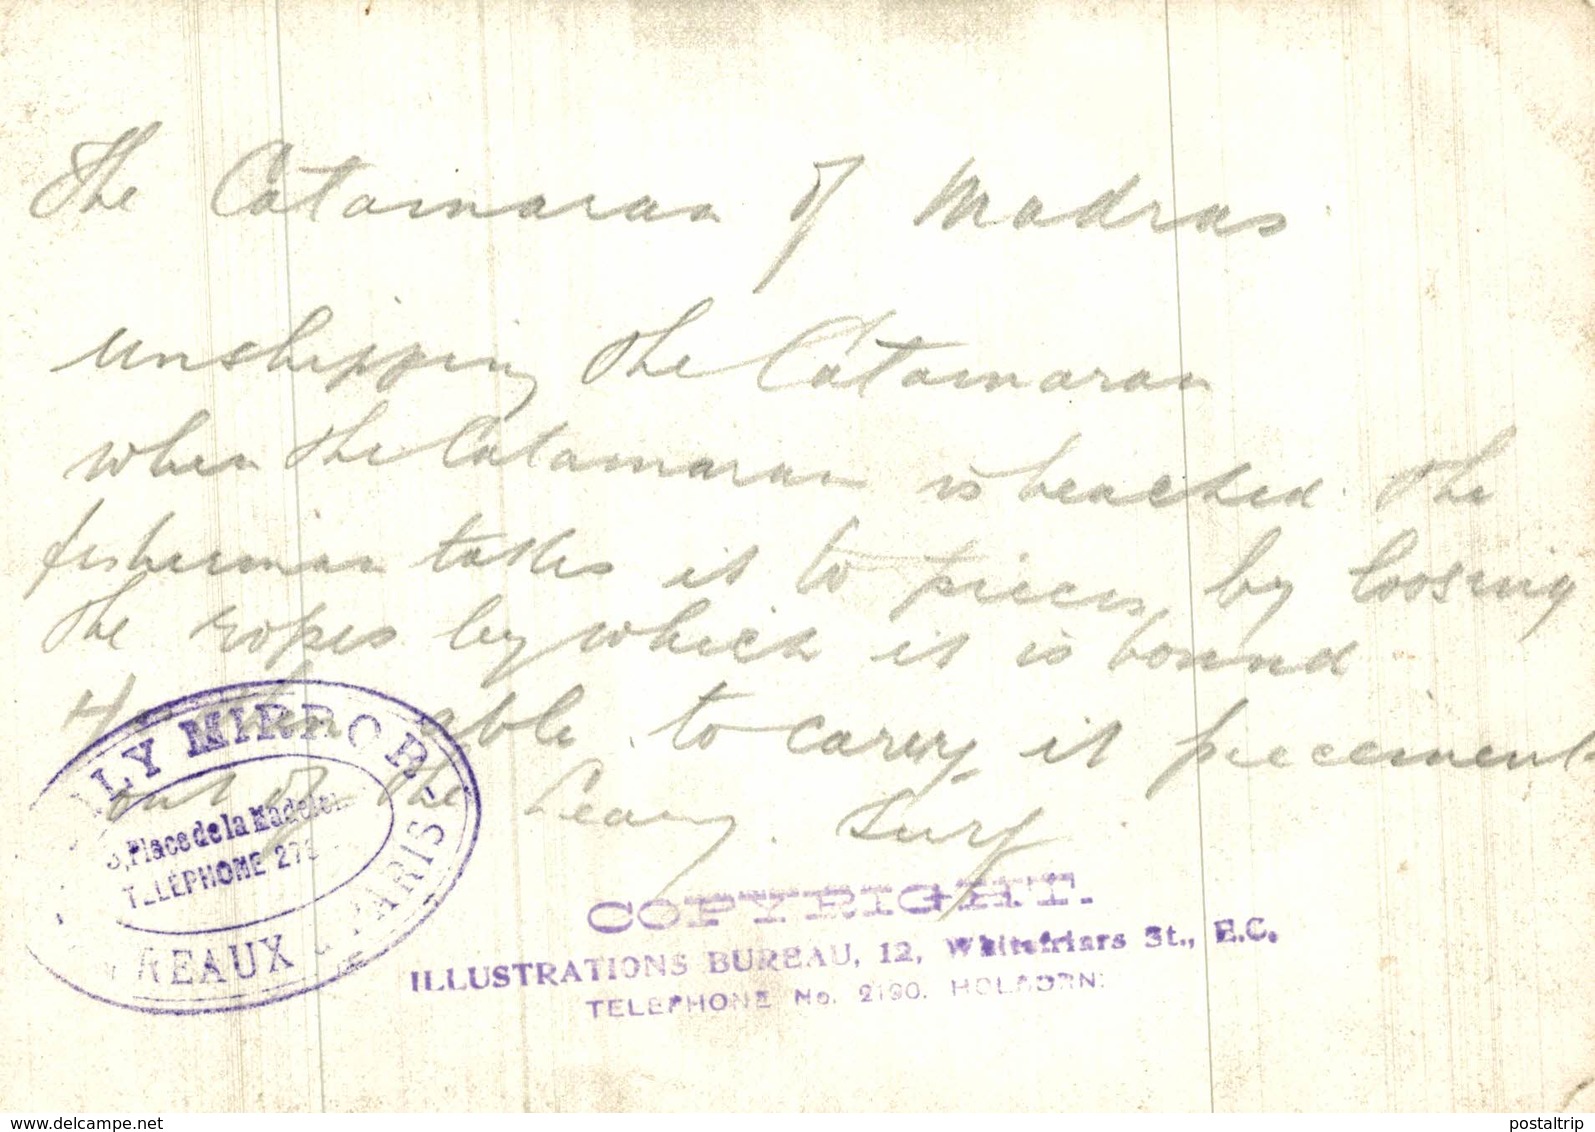 The Catamaran of Madras
unshipping the Catamaran
when the Catamaran is beached the
fisherman takes it to pieces, by loosing
the ropes by which it is bound
He then able to carry it piecemeal
out of the heavy surf.
ILY MIRROR
Place de la Madelei
TELEPHONE 27
REAUX PARIS
COPYRIGHT.
ILLUSTRATIONS BUREAU, 12, Whitefriars St., E.C.
TELEPHONE No. 2190. HOLBORN.
delcampe.net
postaltrip